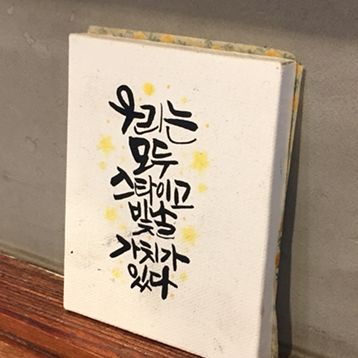 우리는
모두
스타이고
빛날
가치가
있다